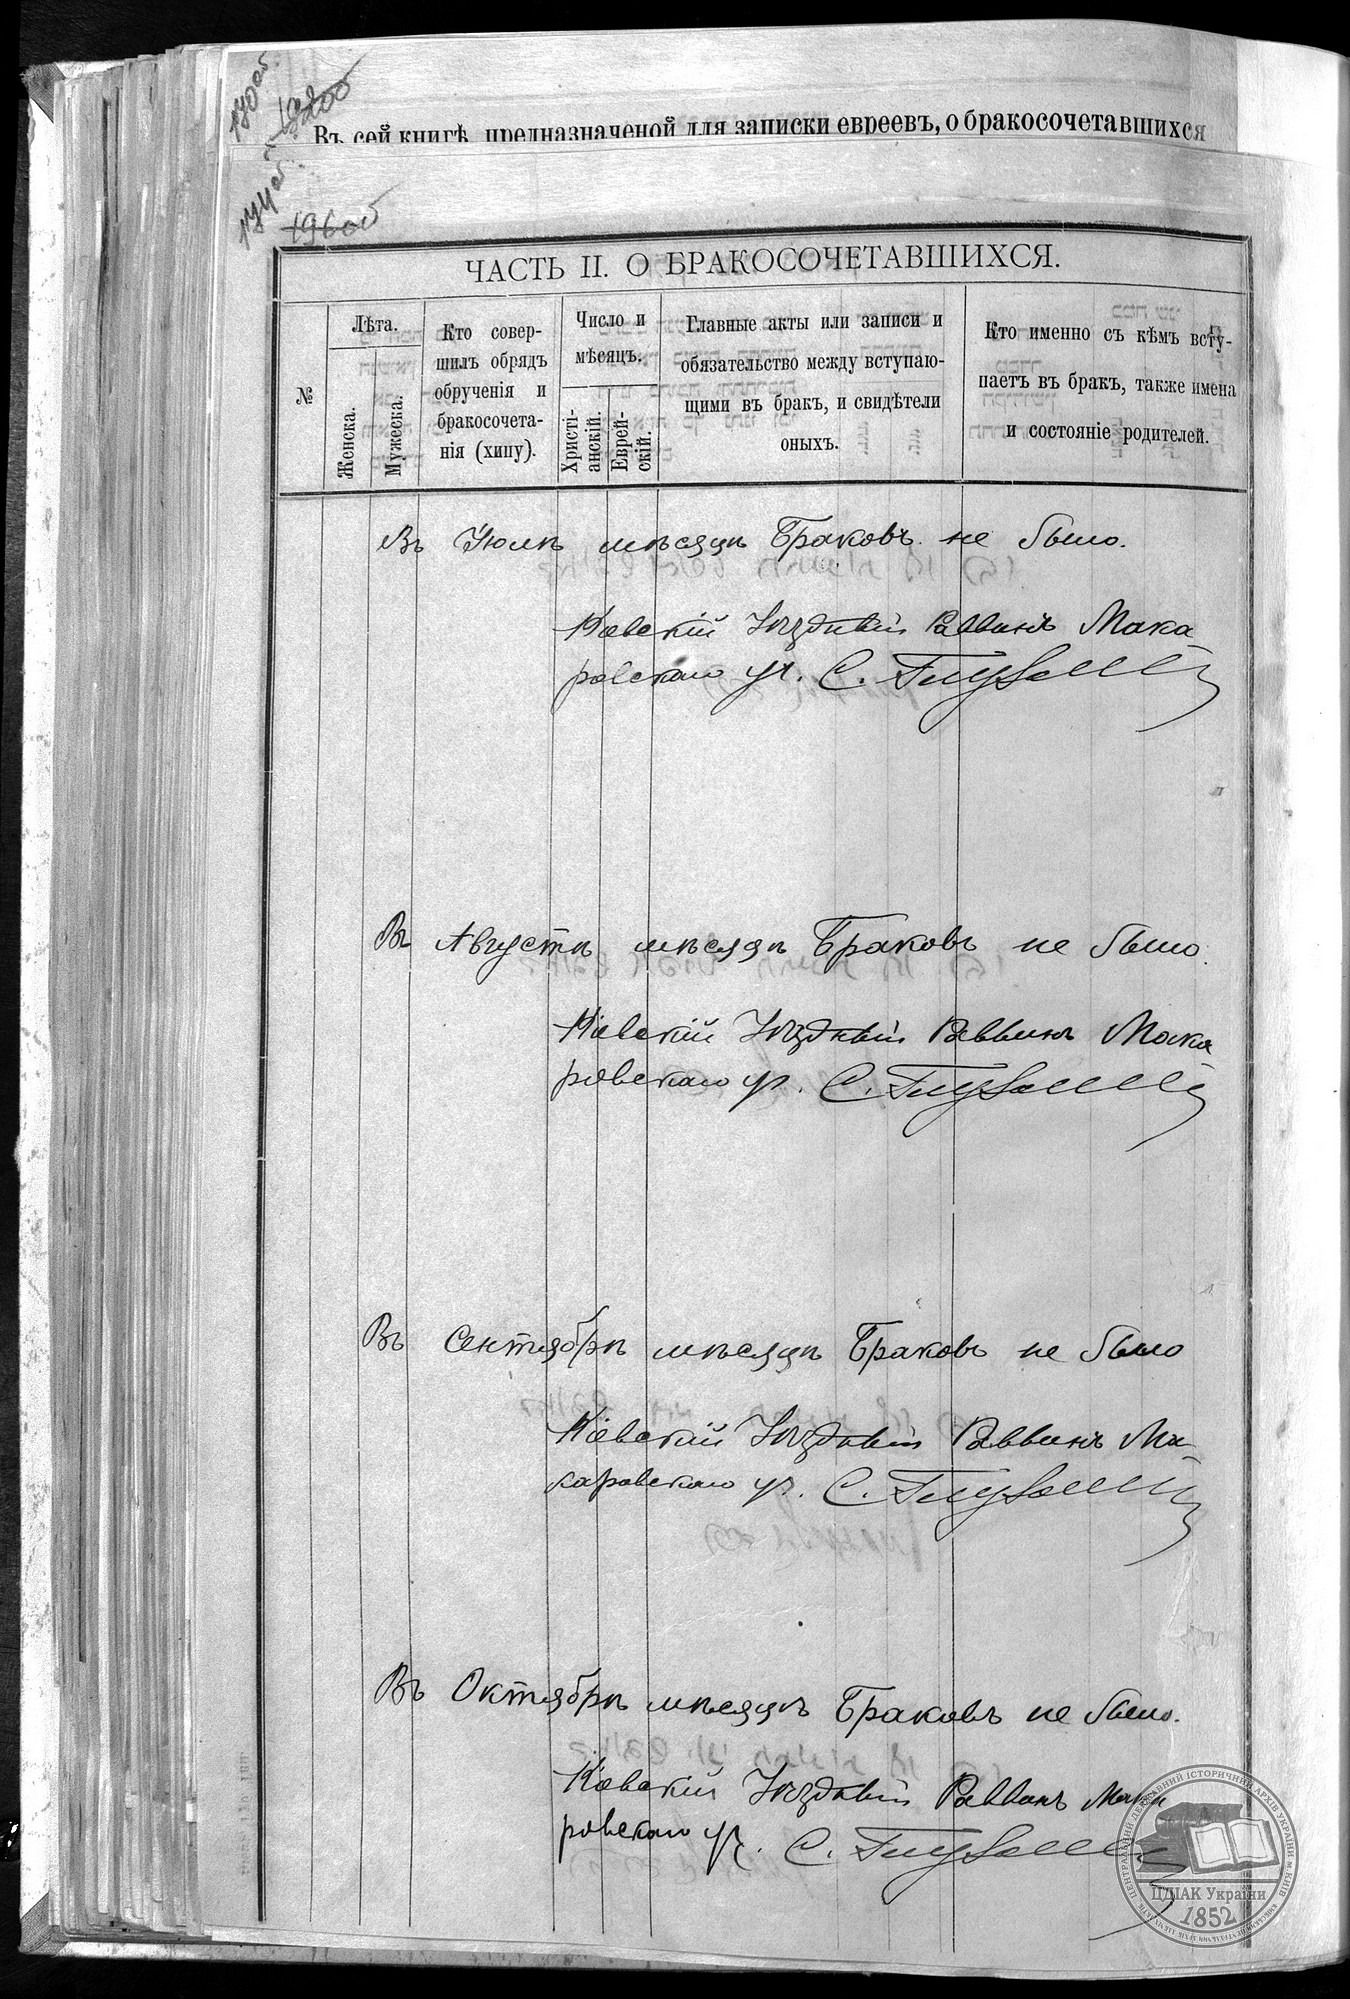 170об.
1960об
Въ сей книгѣ, предназначеной для записки евреевъ, о бракосочетавшихся
ЧАСТЬ II. О БРАКОСОЧЕТАВШИХСЯ.
№
Лѣта.
Женска.
Мужеска.
Кто совер-
шилъ обрядъ
обрученія и
бракосочета-
нія (хипу).
Число и
мѣсяцъ.
Христі-
анскій.
Еврей-
скій.
Главные акты или записи и
обязательство между вступаю-
щими въ бракъ, и свидѣтели
оныхъ.
Кто именно съ кѣмъ всту-
паетъ въ бракъ, также имена
и состояніе родителей.
Въ Іюлѣ мѣсяцѣ Браковъ не было.
Кіевскій Уѣздный Раввинъ Мака
ровскаго уч. С.
Въ Августѣ мѣсяцѣ Браковъ не было.
Кіевскій Уѣздный Раввинъ Мака
ровскаго уч. С.
Въ Сентябрѣ мѣсяцѣ Браковъ не было
Кіевскій Уѣздный Раввинъ Ма-
каровскаго уч. С.
Въ Октябрѣ мѣсяцѣ Браковъ не было.
Кіевскій Уѣздный Раввинъ Мака
ровскаго уч. С.
ЦЕНТРАЛЬНИЙ ДЕРЖАВНИЙ ІСТОРИЧНИЙ АРХІВ УКРАЇНИ, М. КИЇВ
ЦДІАК України
1852